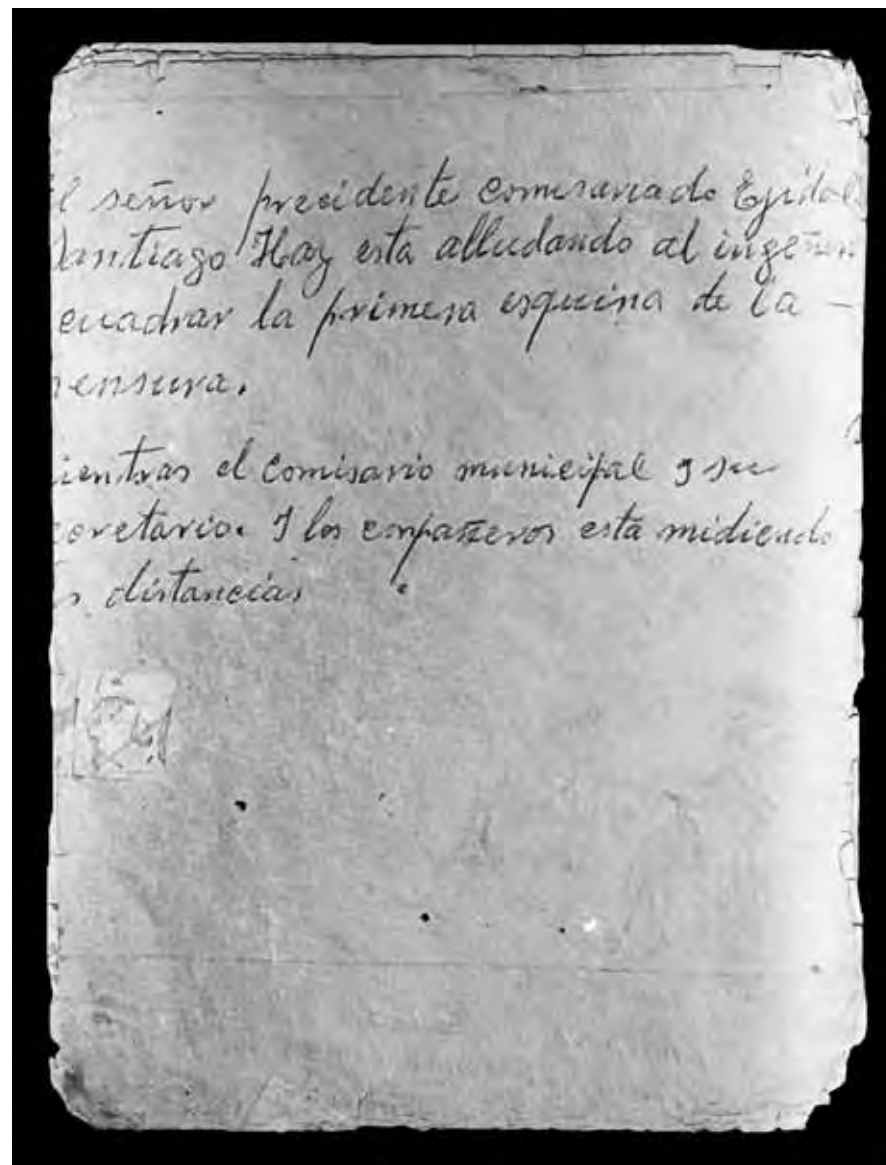 l señor precidente comisariado Ejidal
Santiago Hay esta alludando al ingeñier
cuadrar la primera esquina de la —
ensura.
ientras el comisario municipal y su
cretario. I los conpañeros está midiendo
s distancias